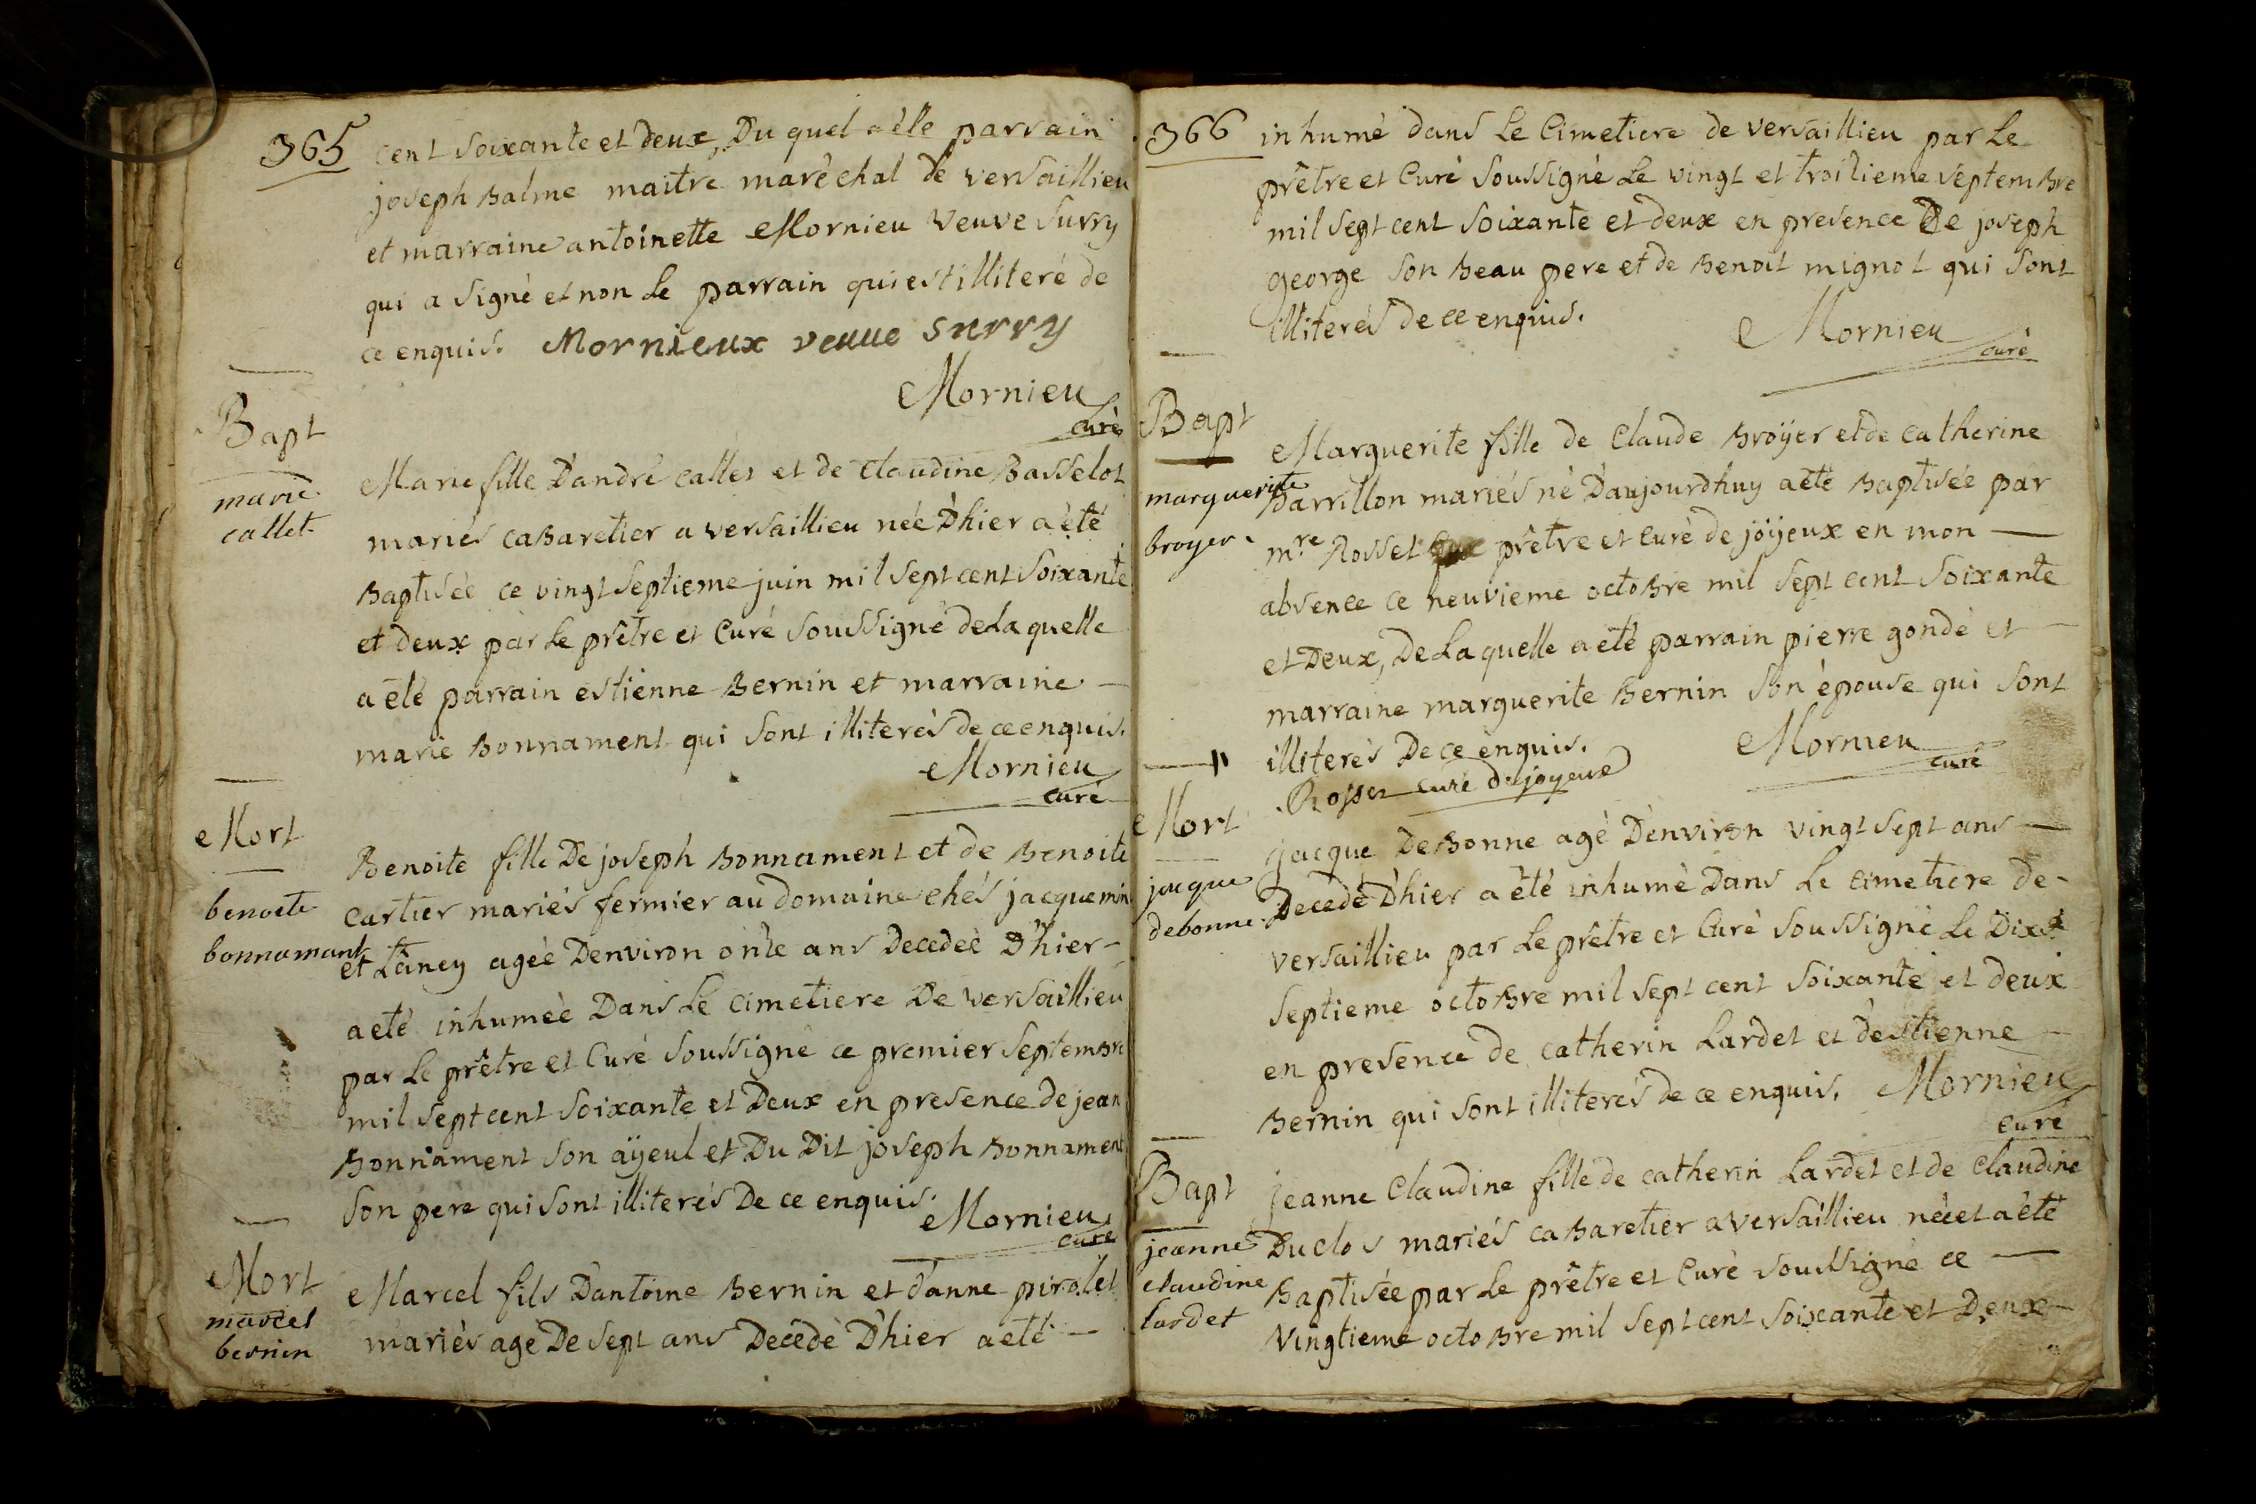 365
cent soixante et deux, Du quel a été parrain
joseph Balme maitre maréchal de versaillieu
et marraine antoinette Mornieu veuve surry
qui a signé et non le parrain qui est illiteré de
ce enquis. Mornieux veuue surry
Mornieu
curé
Bapt
marie
callet
Marie fille D'andré callet et de claudine Basselot
mariés caBaretier a versaillieu née D'hier a été
Baptisée ce vingt septieme juin mil sept cent soixante
et deux par le prêtre et curé soussigné de laquelle
a été parrain estienne Bernin et marraine
marie Bonnament qui sont illiterés de ce enquis.
Mornieu
curé
Mort
benoite
bonnamant
Benoite fille De joseph Bonnament et de Benoite
cartier mariés fermier au domaine chés jacquemin
et Laney agée Denviron onze ans Decedeé D'hier
a eté inhumée Dans Le cimetiere De versaillieu
par Le prêtre et Curé soussigné ce premier septembre
mil sept cent soixante et Deux en presence de jean
Bonnament son ayeul et Du Dit joseph Bonnament
son pere qui sont illiterés De ce enquis.
Mornieu
curé
Mort
marcel
bernin
Marcel fils D'antoine Bernin et d'anne pirolet
mariés agé De sept ans Decédé D'hier a eté
366
inhumé dans Le Cimetiere de versaillieu par Le
prêtre et Curé soussigné Le vingt et troisieme septembre
mil sept cent soixante et deux en presence De joseph
george son Beau pere et de Benoit mignot qui sont
illiterés de ce enquis.
Mornieu
curé
Bapt
marguerite
broyer
Marguerite fille de Claude Broÿer et de catherine
Barrillon mariés né D'aujourdhuy a eté Baptisée par
mre Rosset prêtre et curé de joÿeux en mon
absence ce neuvieme octoBre mil sept cent soixante
et Deux, De Laquelle a eté parrain pierre gonde et
marraine marguerite Bernin son épouse qui sont
illiterés De ce enquis.
Mornieu
curé
Rosset curé de joyeux
Mort
jacque
debonne
jacque DeBonne agé D'environ vingt sept ans
Decedé D'hier a été inhumé Dans Le cimetiere de
versaillieu par Le prêtre et Curé soussigné Le Dix
septieme octoBre mil sept cent soixante et deux
en presence de catherin Lardet et d'estienne
Bernin qui sont illiterés de ce enquis. Mornieu
curé
Bapt
jeanne
claudine
lardet
jeanne Claudine fille de catherin Lardet et de Claudine
Duclos mariés caBaretier a versaillieu née et a été
Baptisée par Le prêtre et Curé soussigné ce
vingtieme octoBre mil sept cent soixante et Deux